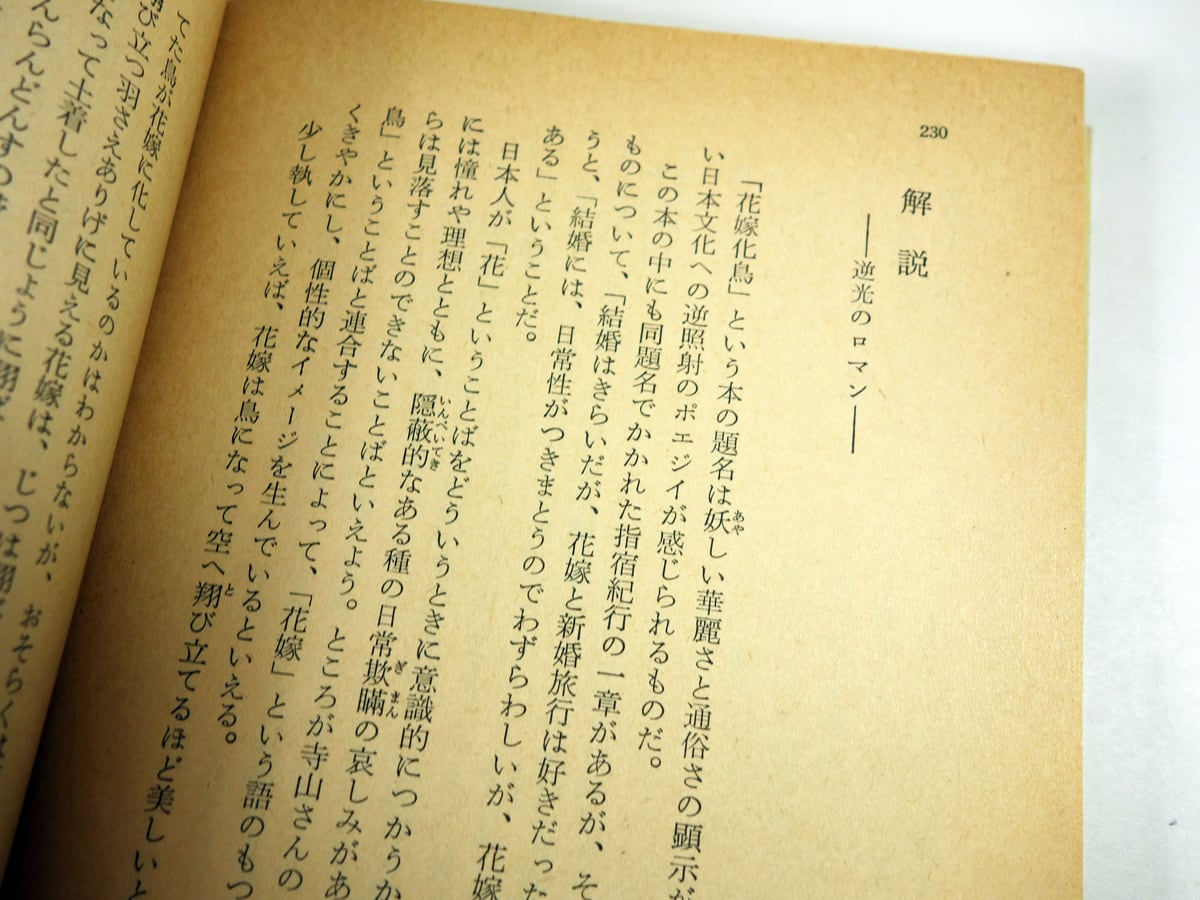 230
解説
――逆光のロマン――
「花嫁化鳥」という本の題名は妖しい華麗さと通俗さの顕示が
い日本文化への逆照射のポエジイが感じられるものだ。
この本の中にも同題名でかかれた指宿紀行の一章があるが、そ
ものについて、「結婚はきらいだが、花嫁と新婚旅行は好きだった
うと、「結婚には、日常性がつきまとうのでわずらわしいが、花嫁
ある」ということだ。
日本人が「花」ということばをどういうときに意識的につかうか
には憧れや理想とともに、隠蔽的なある種の日常欺瞞の哀しみがあ
らは見落すことのできないことばといえよう。ところが寺山さんの
鳥」ということばと連合することによって、「花嫁」という語のもつ
くきやかにし、個性的なイメージを生んでいるといえる。
少し執していえば、花嫁は鳥になって空へ翔び立てるほど美しいと
てた鳥が花嫁に化しているのかはわからないが、おそらくは
び立つ羽さえありげに見える花嫁は、じつは
なって土着したと同じように
んらんどんすの